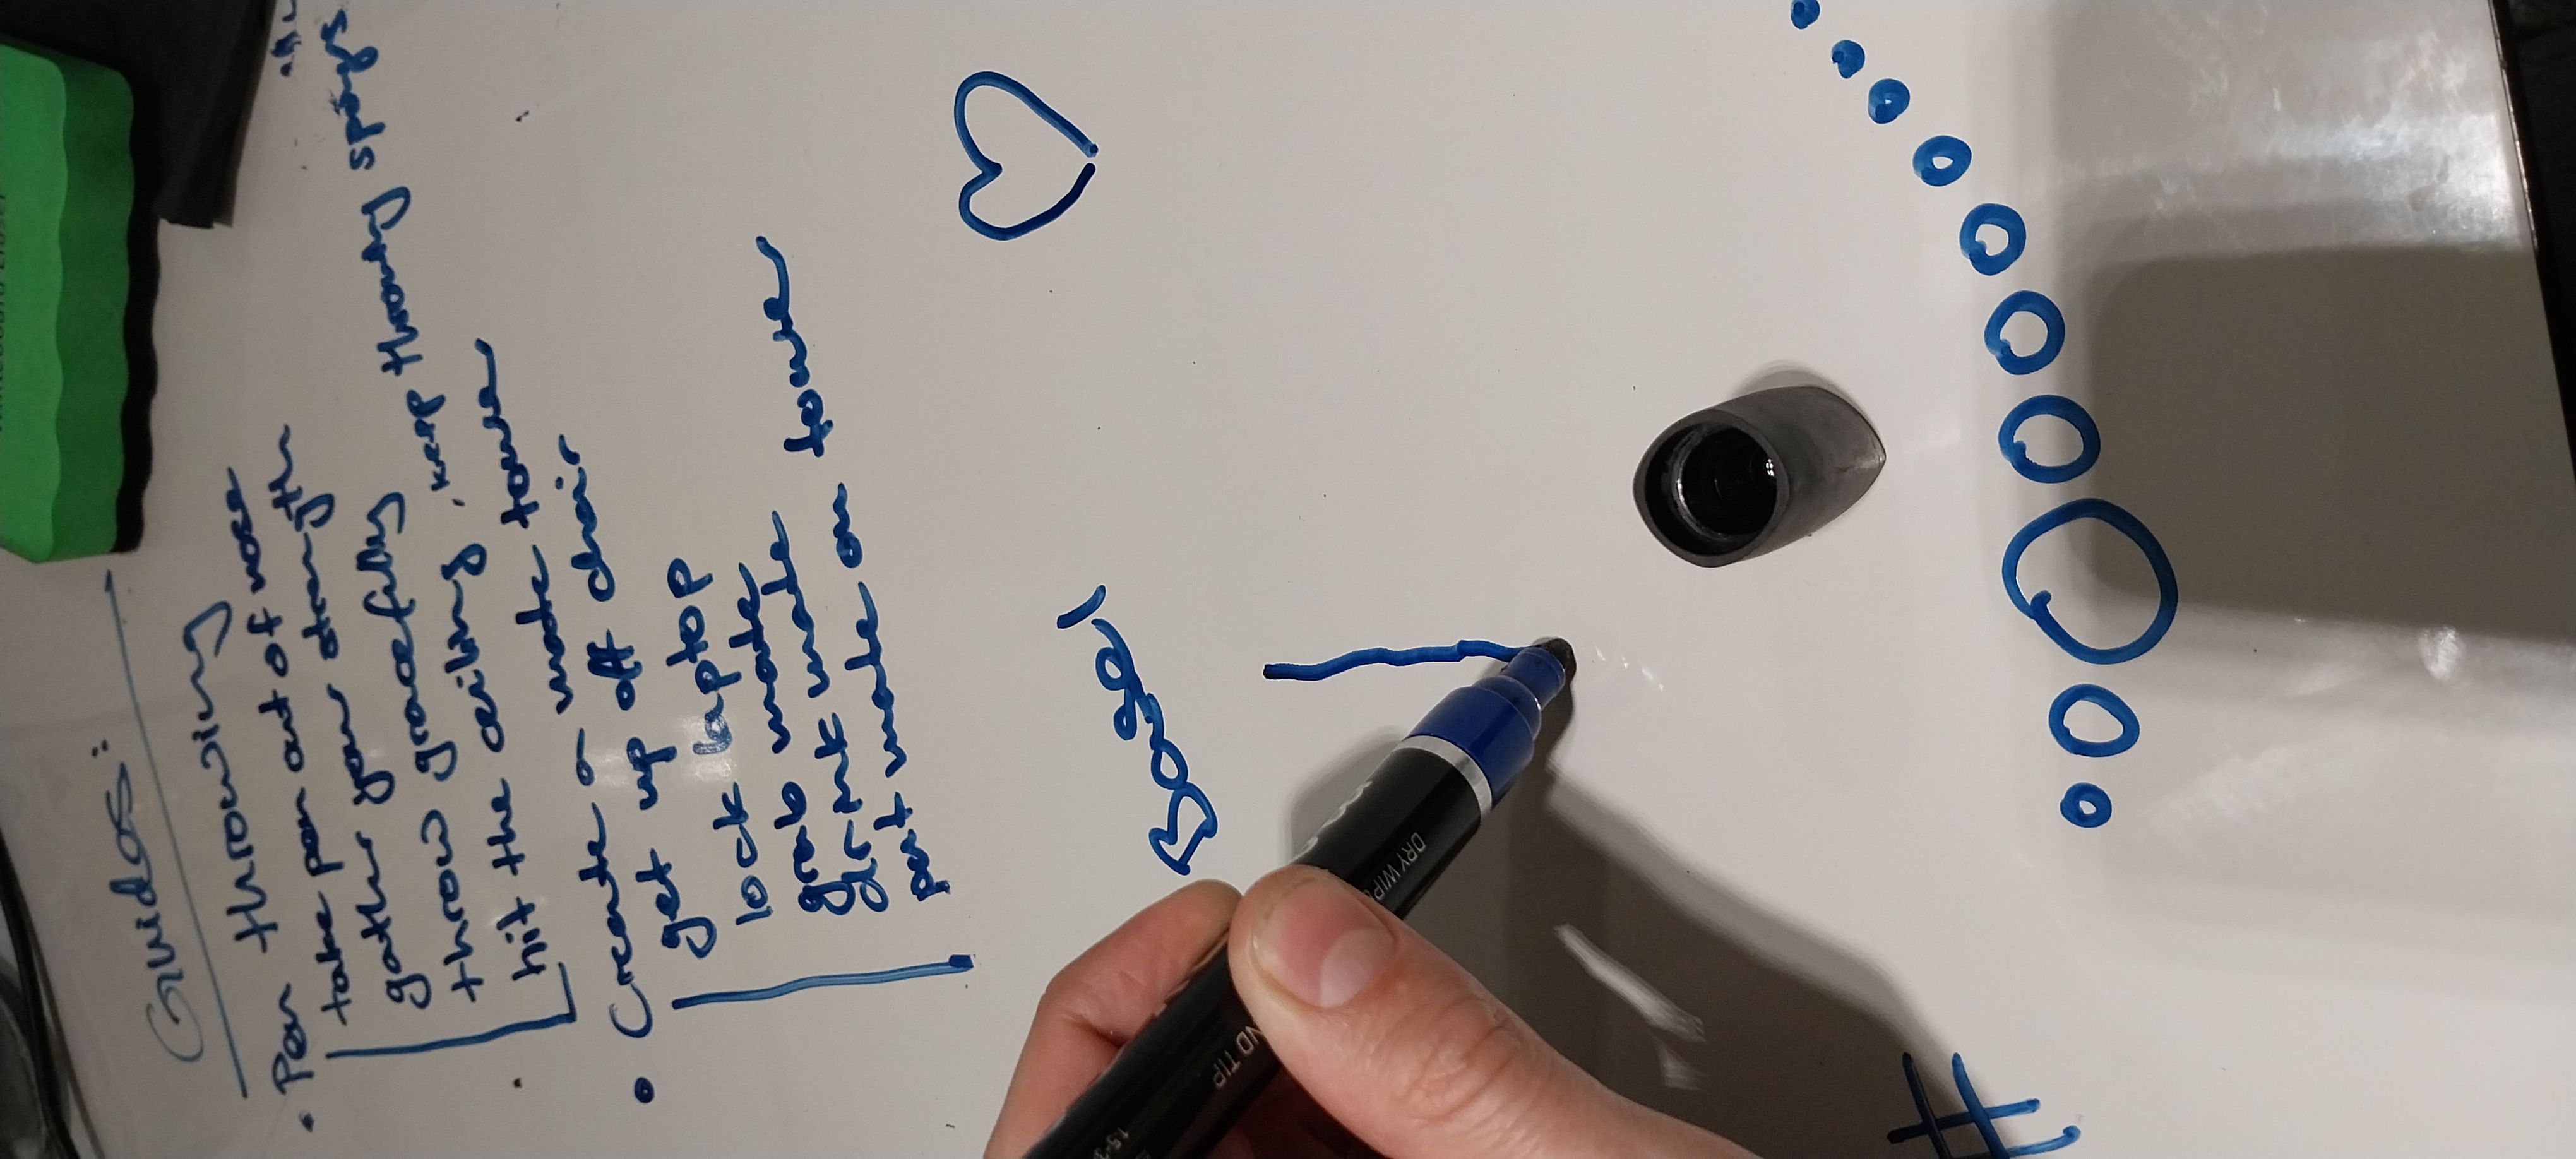 Whiteboard Eraser
Guides:
• Pen throwing
take pen out of nose
gather your strength
throw gracefully
hit the ceiling, keep throwing
• Create a mate tower
get up off chair
lock laptop
grab mate
drink mate
put mate on tower
Basel
ND TIP
DRY WIPE
#